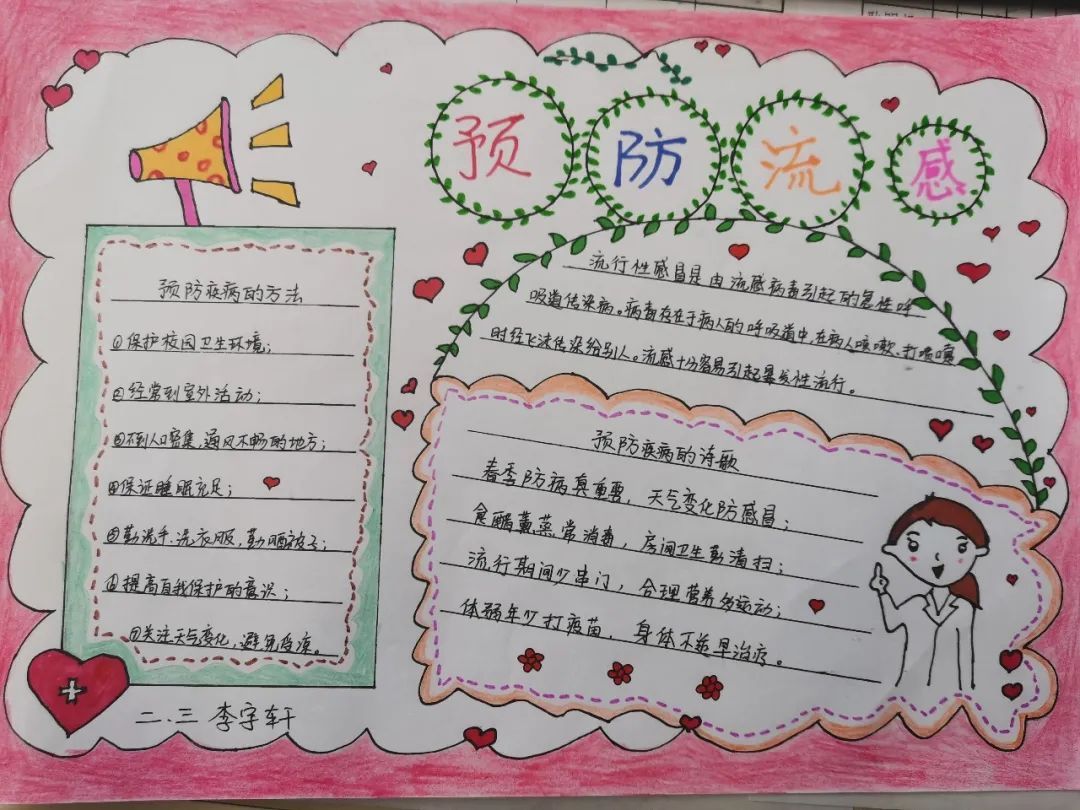 预防流感
预防疾病的方法
①保护校园卫生环境；
②经常到室外活动；
③不到人口密集，通风不畅的地方；
④保证睡眠充足；
⑤勤洗手、洗衣服，勤晒被子；
⑥提高自我保护的意识；
⑦关注天气变化，避免着凉。
二.三 李宇轩
流行性感冒是由流感病毒引起的急性呼
吸道传染病。病毒存在于病人的呼吸道中，在病人咳嗽、打喷嚏
时经飞沫传染给别人。流感十分容易引起暴发性流行。
预防疾病的诗歌
春季防病真重要，天气变化防感冒；
食醋薰蒸常消毒，房间卫生勤清扫；
流行期间少串门，合理营养多运动；
体弱年少打疫苗，身体不适早治疗。